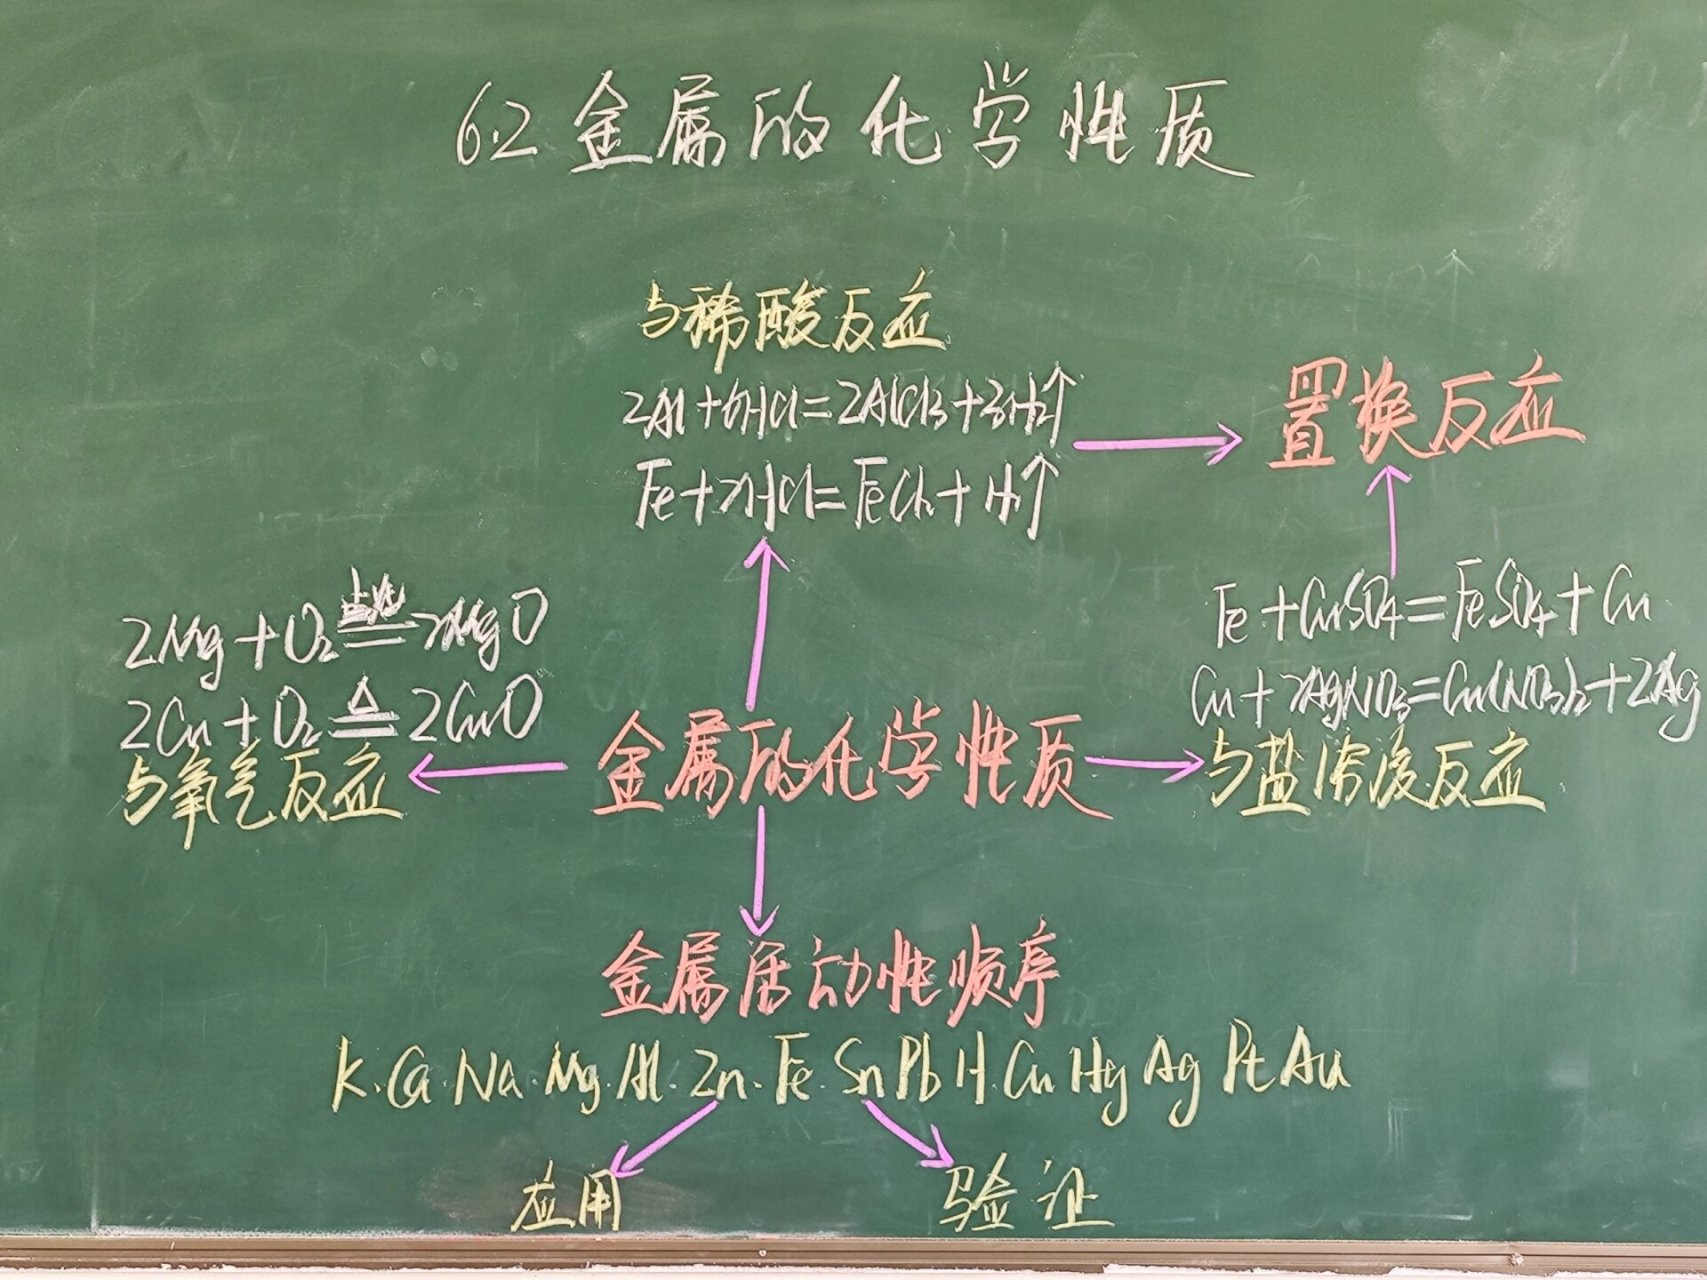 6.2 金属的化学性质
与稀酸反应
2Al+6HCl=2AlCl3+3H2↑
Fe+2HCl=FeCl2+H2↑
置换反应
2Mg+O2 点燃 2MgO
2Cu+O2 △ 2CuO
与氧气反应
金属的化学性质
Fe+CuSO4=FeSO4+Cu
Cu+2AgNO3=Cu(NO3)2+2Ag
与盐溶液反应
金属活动性顺序
K.Ca.Na.Mg.Al.Zn.Fe.Sn Pb H.Cu Hg Ag Pt Au
应用
验证